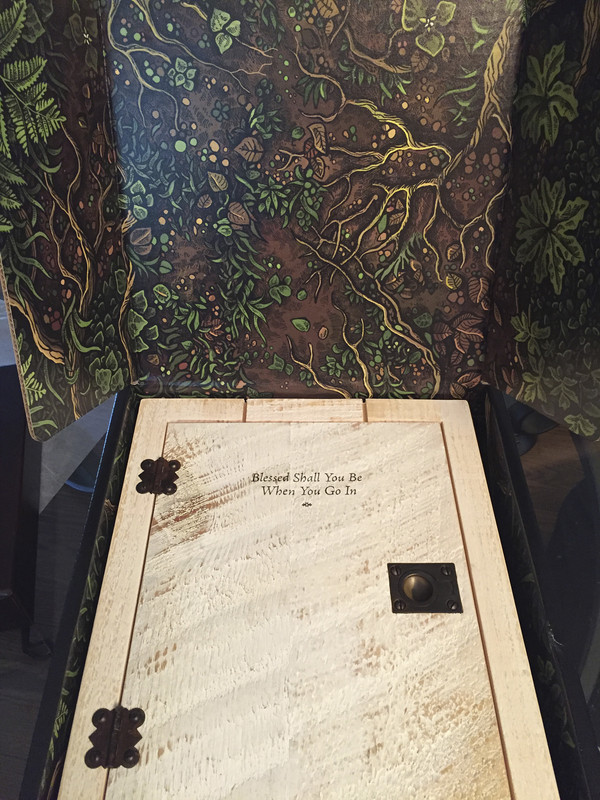 Blessed Shall You Be
When You Go In